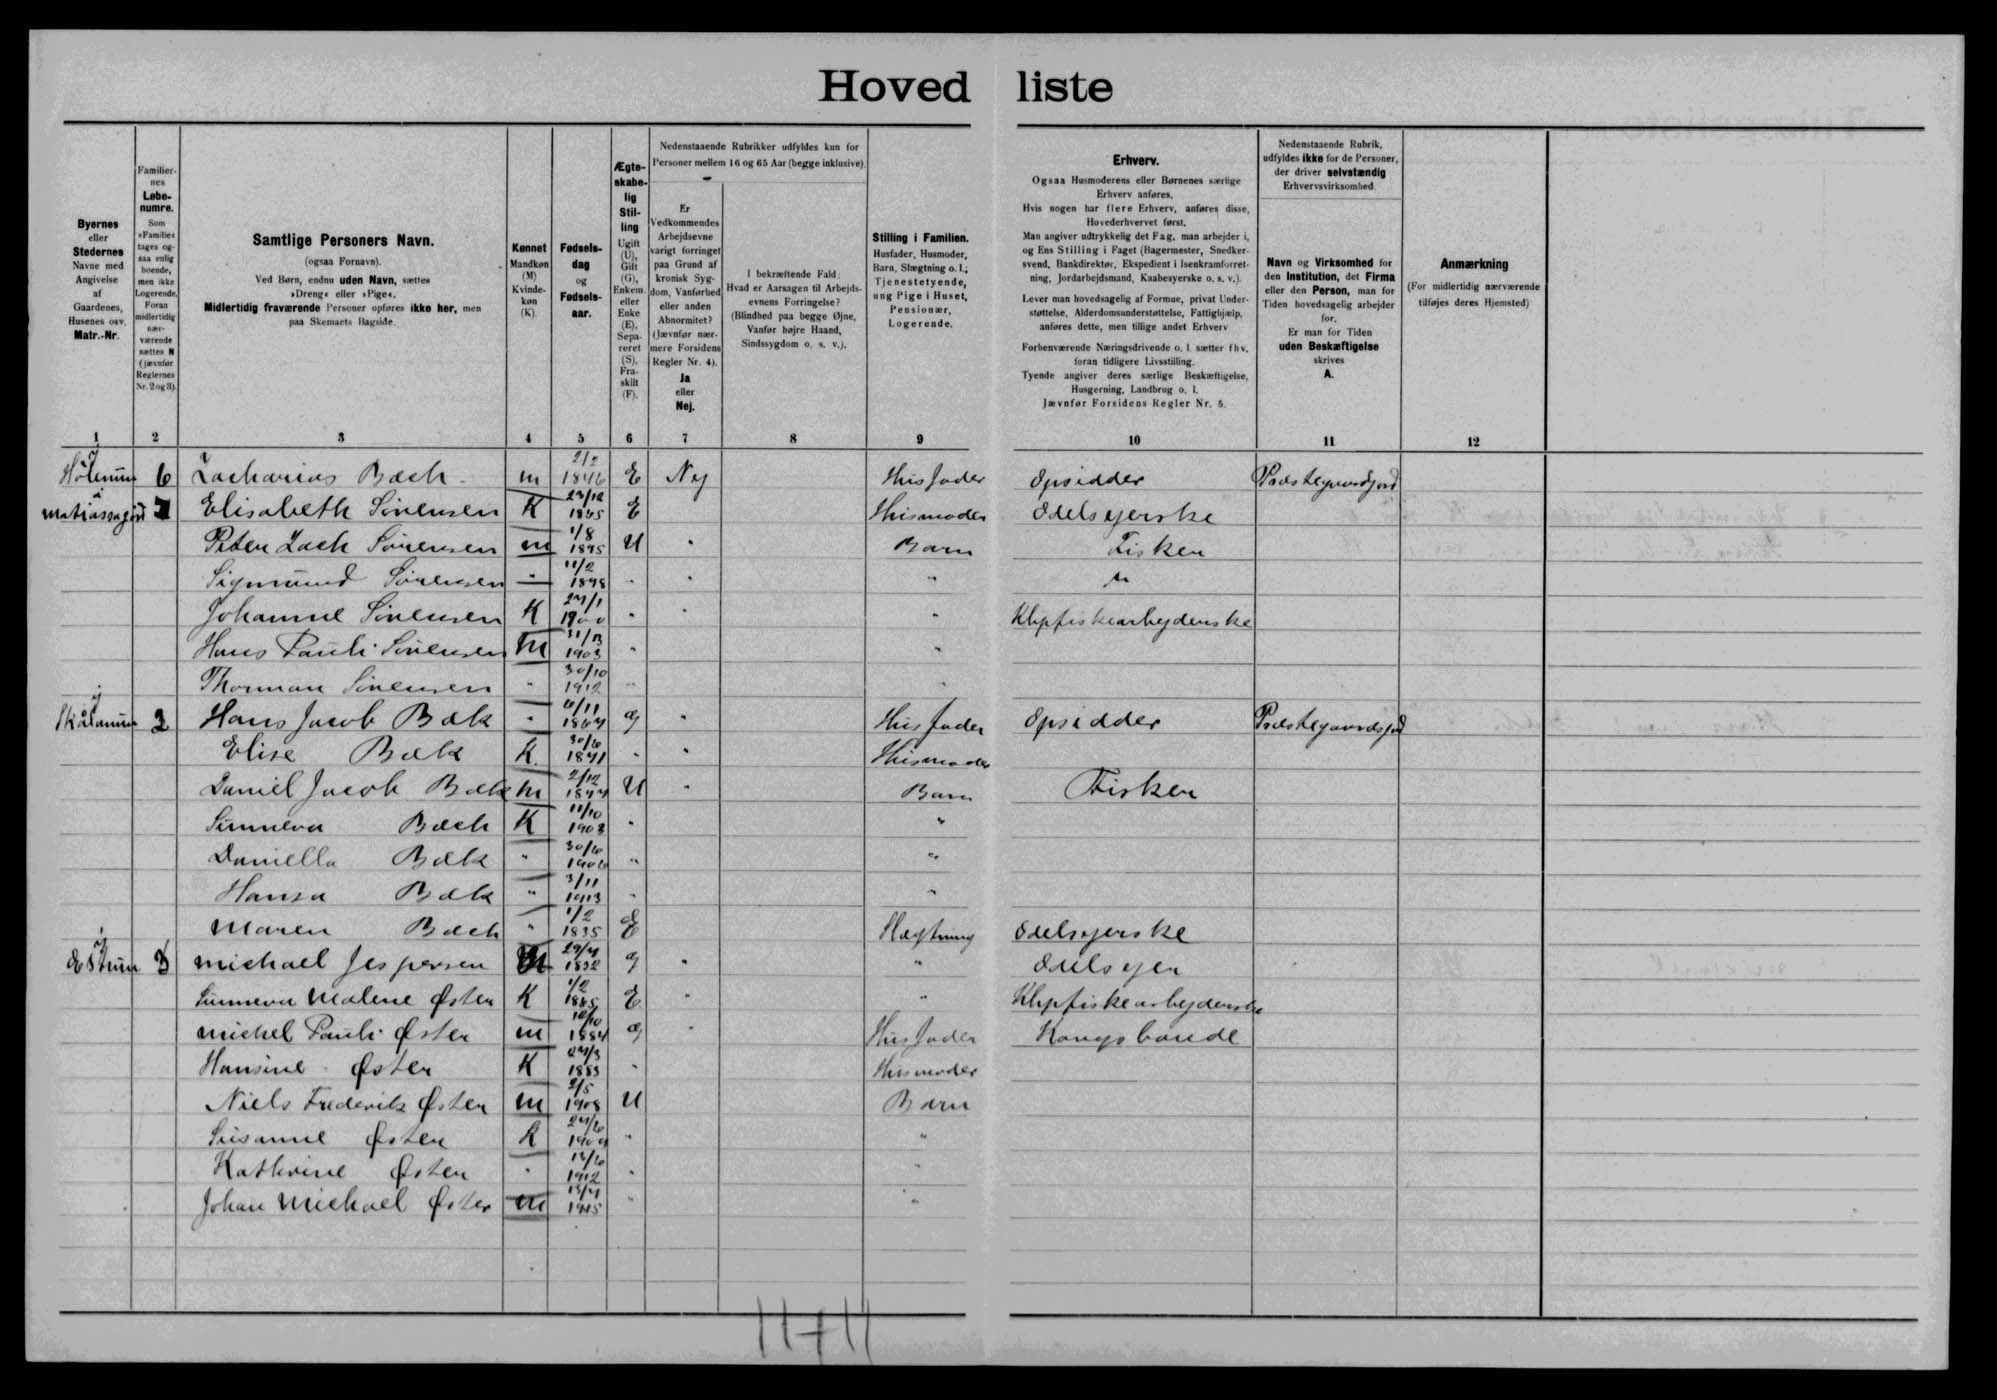 Hovedliste
Byernes
eller
Stedernes
Navne med
Angivelse
af
Gaardenes,
Husenes osv.
Matr.-Nr.
Familier-
nes
Løbe-
numre.
Som
»Familie«
tages og-
saa enlig
boende,
men ikke
Logerende.
Foran
midlertidig
nær-
værende
sættes N
(jævnfør
Reglernes
Nr. 2 og 3).
Samtlige Personers Navn.
(ogsaa Fornavn).
Ved Børn, endnu uden Navn, sættes
»Dreng« eller »Pige«.
Midlertidig fraværende Personer opføres ikke her, men
paa Skemaets Bagside.
Kønnet
Mandkøn
(M)
Kvinde-
køn
(K).
Fødsels-
dag
og
Fødsels-
aar.
Ægte-
skabe-
lig
Stil-
ling
Ugift
(U),
Gift
(G),
Enkem.
eller
Enke
(E),
Sepa-
reret
(S),
Fra-
skilt
(F).
Nedenstaaende Rubrikker udfyldes kun for
Personer mellem 16 og 65 Aar (begge inklusive).
Er
Vedkommendes
Arbejdsevne
varigt forringet
paa Grund af
kronisk Syg-
dom, Vanførhed
eller anden
Abnormitet?
(Jævnfør nær-
mere Forsidens
Regler Nr. 4).
Ja
eller
Nej.
I bekræftende Fald:
Hvad er Aarsagen til Arbejds-
evnens Forringelse?
(Blindhed paa begge Øjne,
Vanfør højre Haand,
Sindssygdom o. s. v.).
Stilling i Familien.
Husfader, Husmoder,
Barn, Slægtning o. l.;
Tjenestetyende,
ung Pige i Huset,
Pensionær,
Logerende.
Erhverv.
Ogsaa Husmoderens eller Børnenes særlige
Erhverv anføres.
Hvis nogen har flere Erhverv, anføres disse,
Hovederhvervet først.
Man angiver udtrykkelig det Fag, man arbejder i,
og Ens Stilling i Faget (Bagermester, Snedker-
svend, Bankdirektør, Ekspedient i Isenkramforret-
ning, Jordarbejdsmand, Kaabesyerske o. s. v.).
Lever man hovedsagelig af Formue, privat Under-
støttelse, Alderdomsunderstøttelse, Fattighjælp,
anføres dette, men tillige andet Erhverv
Forhenværende Næringsdrivende o. l. sætter fhv.
foran tidligere Livsstilling.
Tyende angiver deres særlige Beskæftigelse,
Husgerning, Landbrug o. l.
Jævnfør Forsidens Regler Nr. 5.
Nedenstaaende Rubrik,
udfyldes ikke for de Personer,
der driver selvstændig
Erhvervsvirksomhed.
Navn og Virksomhed for
den Institution, det Firma
eller den Person, man for
Tiden hovedsagelig arbejder
for.
Er man for Tiden
uden Beskæftigelse
skrives
A.
Anmærkning
(For midlertidig nærværende
tilføjes deres Hjemsted)
1 2 3 4 5 6 7 8 9 10 11 12
6 Zacharias Bæch m 2/2 1846 E Nej Husfader Opsidder
Elisabeth Sørensen K E Husmoder Odelsejerske
Peter Zach Sørensen m 1/8 1895 U " Barn Fisker
Sigmund Sørensen " 11/2 1898 " " "
Johanne Sørensen K 1900 " " " Klipfiskearbejderske
Hans Pauli Sørensen m 1903 " "
Thorman Sørensen " 30/10 1912 " "
2 Hans Jacob Bæk " 6/11 1867 g " Husfader Opsidder
Elise Bæk K. 1871 " " Husmoder
Daniel Jacob Bæk m 2/12 U " Barn Fisker
Sunneva Bæch K 11/10 1903 " "
Daniella Bæk " " "
Hansa Bæk " 3/11 1913 " "
Maren Bæch " 1/2 1835 E Slægtning Odelsejerske
Michael Jespersen M 1832 g " " Odelsejer
Sunneva Malene Østen K 1/2 E " " Klipfiskearbejderske
Michel Pauli Østen m 1884 g " Husfader Kongsbonde
Hansine Østen K 1883 " Husmoder
Niels Frederik Østen m 2/5 1908 U Barn
Susanne Østen K 1909 " "
Kathrine Østen " 1912 " "
Johan Michael Østen m 1915 " "
11+11